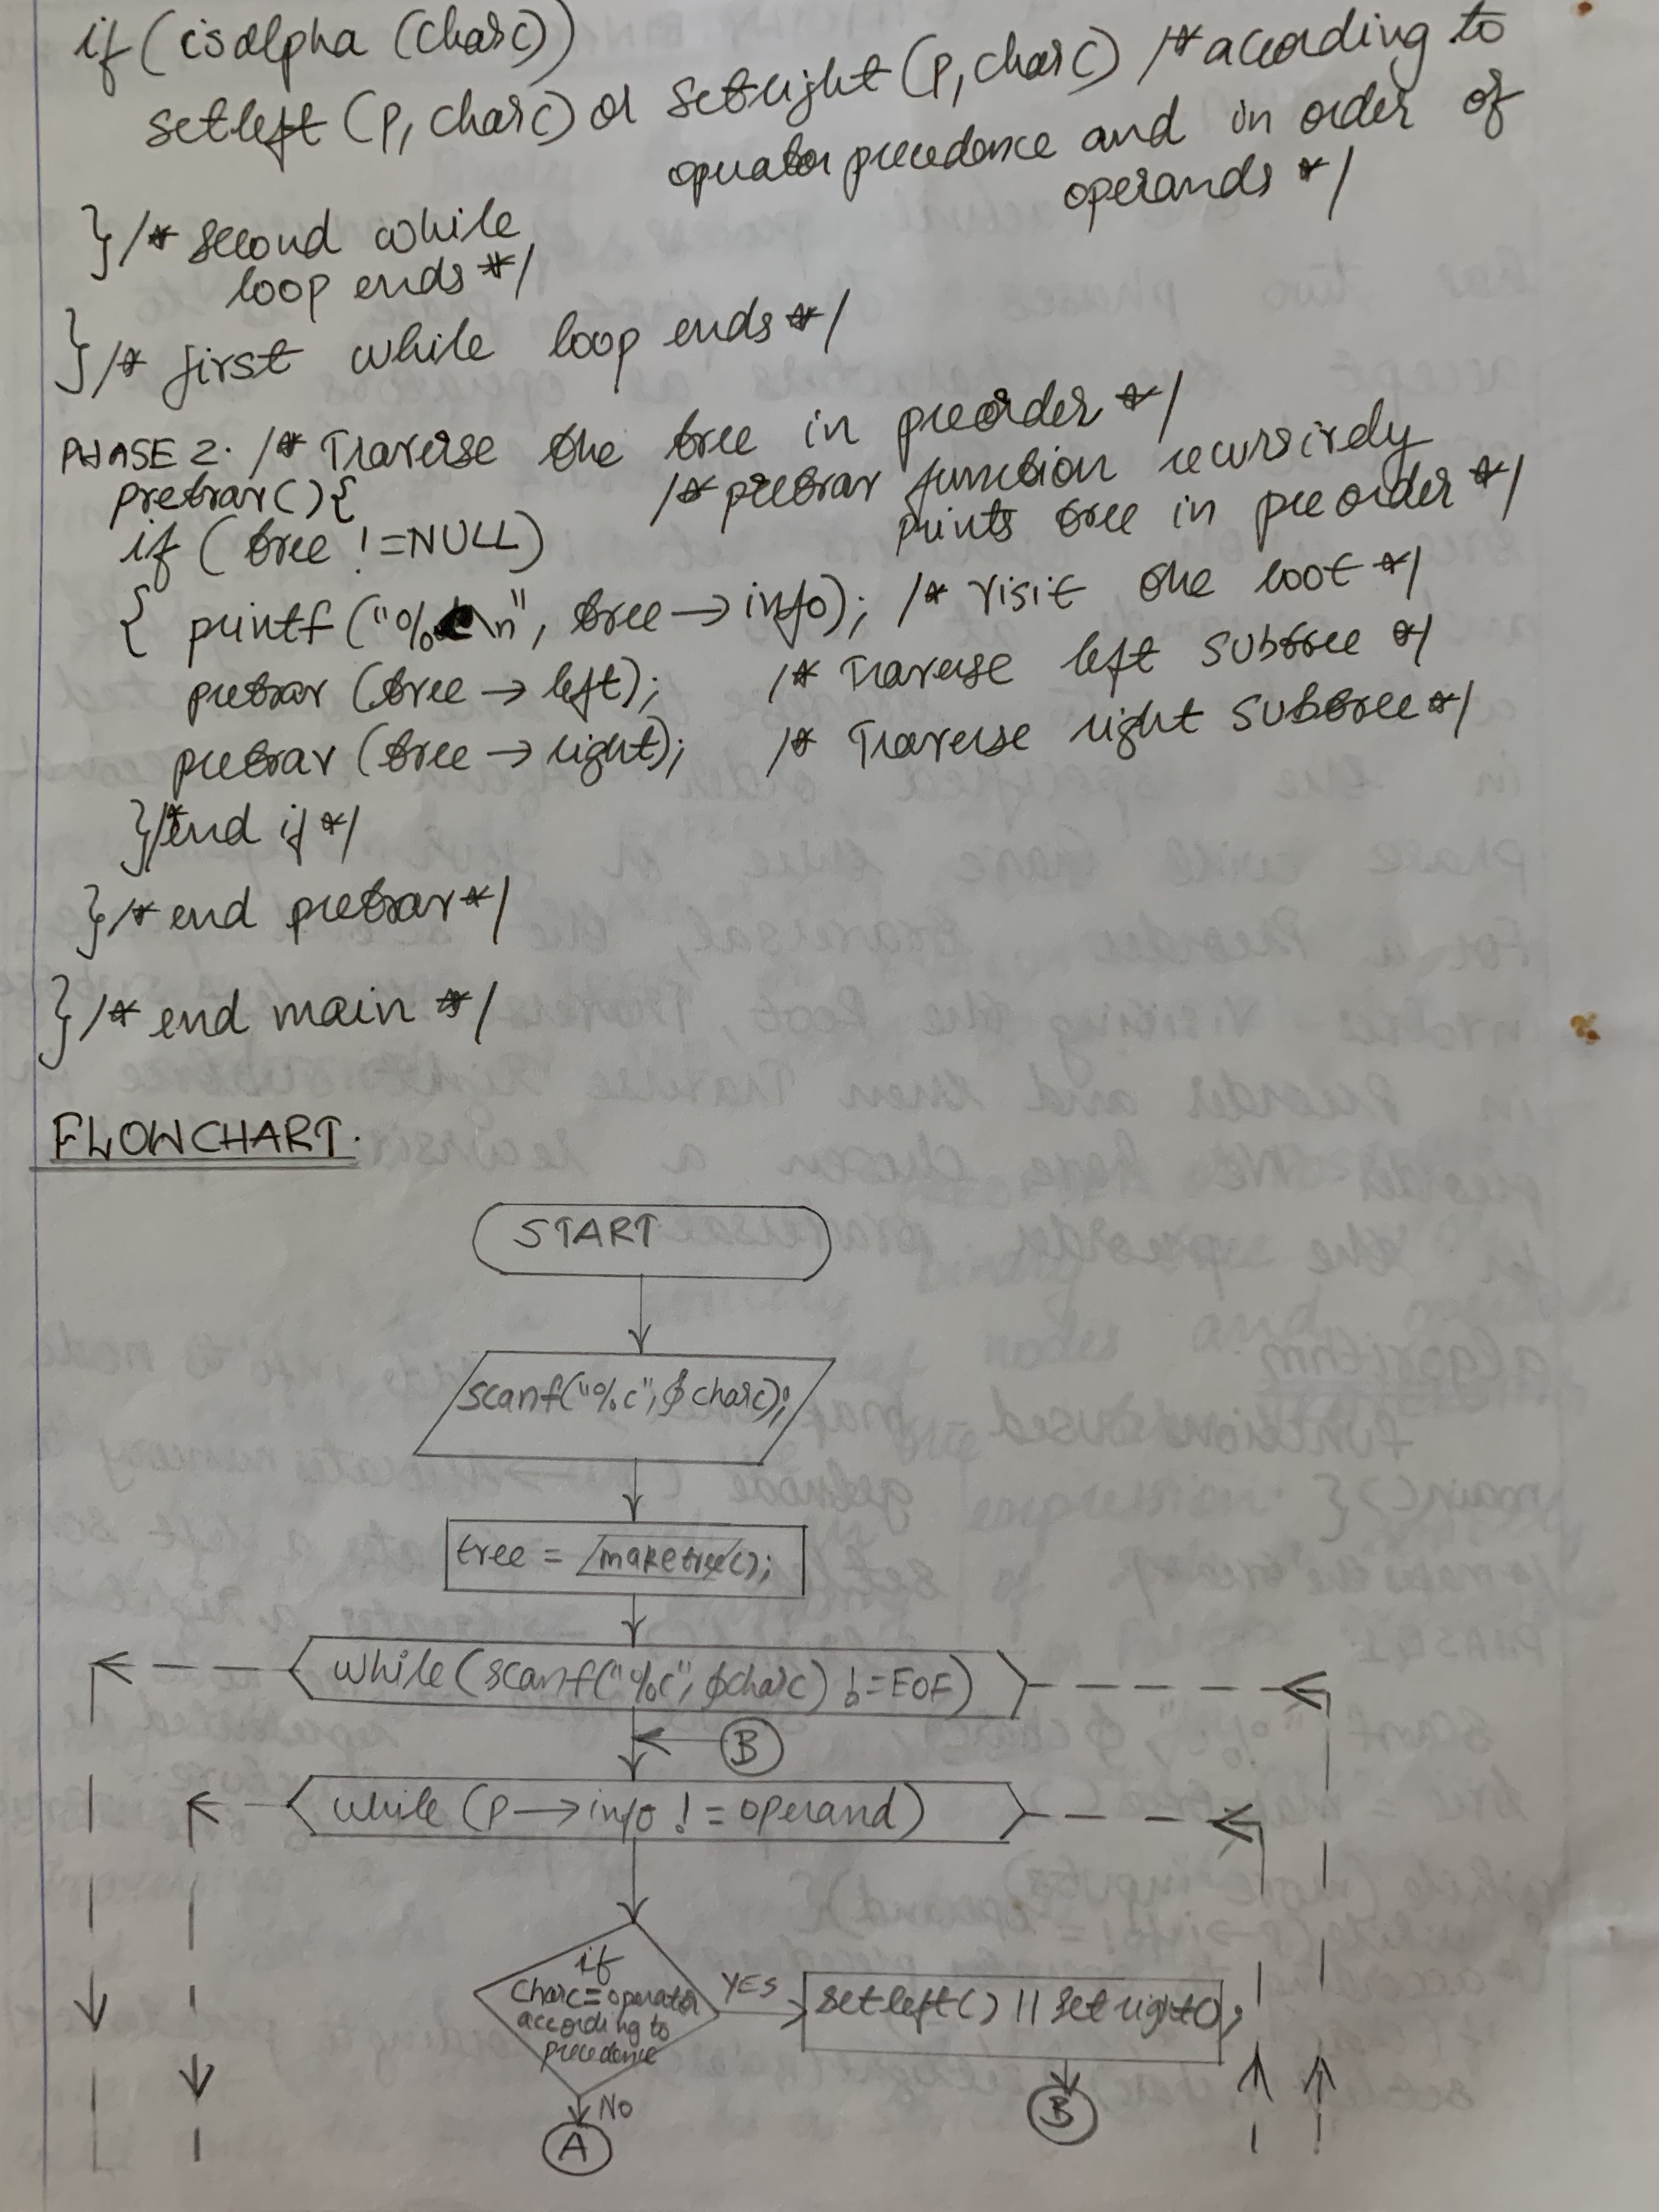 if (isalpha (charc))
setleft (p, charc) or setright (p, charc) /* acording to
operator precedence and in order of
operands */
} /* second while
loop ends */
} /* first while loop ends */
PHASE 2. /* Traverse the tree in preorder */
pretrav() { /* pretrav function recursively
prints tree in preorder */
if ( tree != NULL)
{ printf ("%c\n", tree → info); /* visit the root */
pretrav (tree → left); /* Traverse left subtree */
pretrav (tree → right); /* Traverse right subtree */
} /* end if */
} /* end pretrav */
} /* end main */
FLOWCHART.
START
scanf("%c", &charc);
tree = maketree();
while (scanf("%c", &charc) != EOF)
B
while (p → info != operand)
if
charc = operator
according to
precedence
YES
setleft() || setright();
NO
A
B